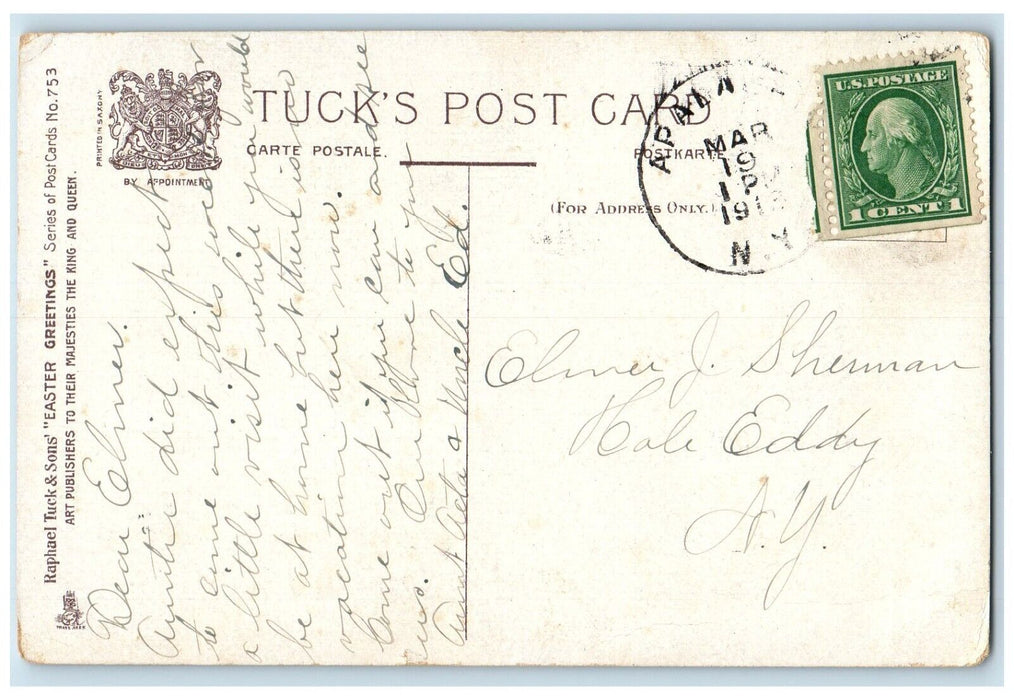 TUCK'S POST CARD
CARTE POSTALE.
POSTKARTE
(FOR ADDRESS ONLY.)
BY APPOINTMENT
PRINTED IN SAXONY
Raphael Tuck & Sons' "EASTER GREETINGS" Series of Post Cards No. 753
ART PUBLISHERS TO THEIR MAJESTIES THE KING AND QUEEN.
Dear Elmer.
Auntie did expect
to come out this week
a little visit while you would
be at home but there is no
vacation here now.
Come out if you can and see
us. Our love to you
Aunt & Uncle Ed.
MAR
19
PM
N.Y.
U.S. POSTAGE
1 CENT 1
Elmer J. Sherman
Hale Eddy
N.Y.